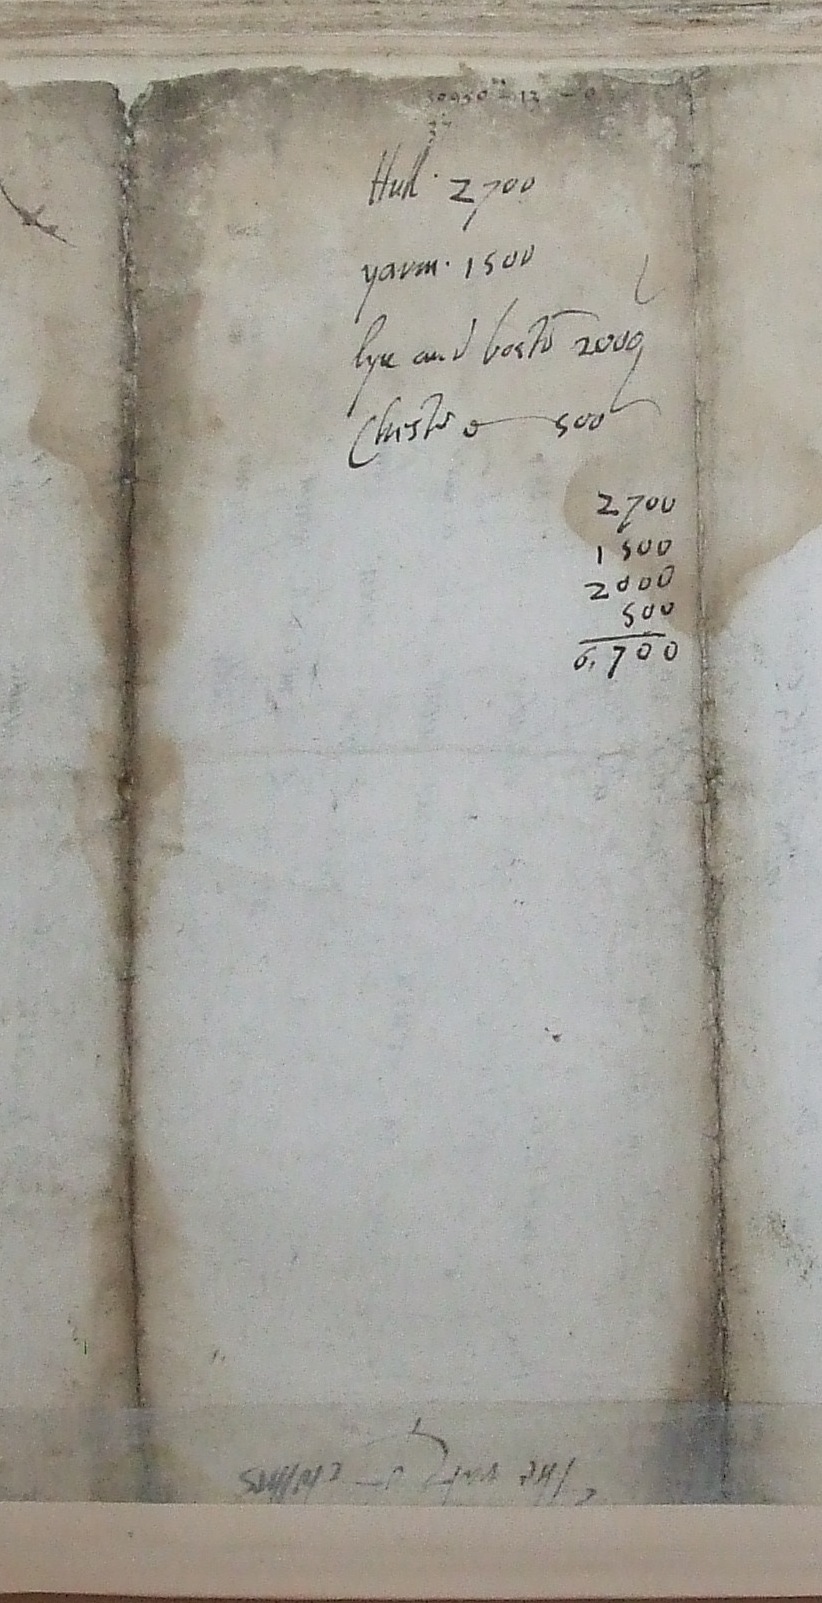 Hull · 2700
yarm · 1500
lyn and bosto 2000
Chesto 500
2700
1500
2000
500
6,700